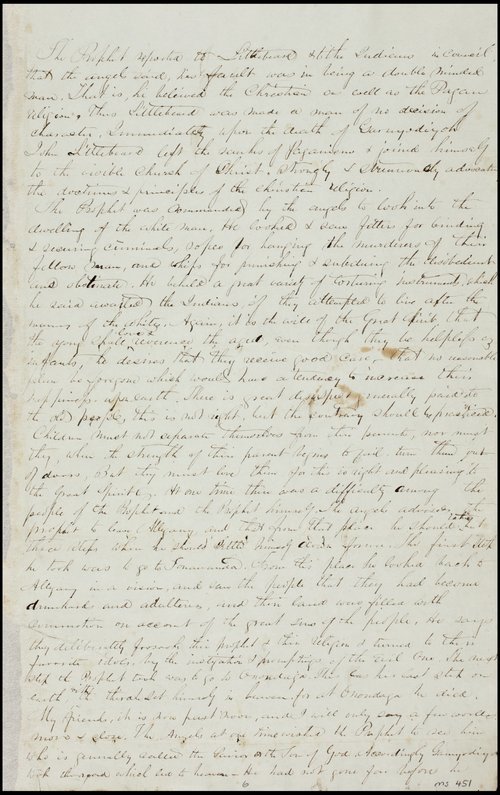 The Prophet reported to Littlebeard & to the Indians in Council,
that the angel said, his fault was in being a double minded
man. That is, he believed the Christian as well as the Pagan
religion, thus, Littlebeard was made a man of no decision of
character. Immediately upon the death of
John Littlebeard left the ranks of Paganism & joined himself
to the visible Church of Christ, strongly & strenuously advocated
the doctrines & principles of the Christian religion.
The Prophet was commanded by the angels to look into the
dwelling of the white man. He looked & saw fetters for binding
& securing criminals, ropes for hanging the murderers of their
fellow man, and whips for punishing & subduing the disobedient
and obstinate. He beheld a great variety of torturing instruments, which
he said awaited the Indians, if they attempted to live after the
manner of the whites. Again, it is the will of the Great Spirit, that
the young shall reverence the aged, even though they be helpless as
infants, he desires that they receive good care, that no reasonable
be foregone which would have a tendency to increase their
happiness upon earth. There is great disrespect usually paid to
the old people, this is not right, but the contrary should be practiced.
Children must not separate themselves from their parents, nor must
they, when the strength of their parent begins to fail turn them out
of doors, But they must love them for this is right and pleasing to
the Great Spirit. At one time there was a difficulty among the
people of the Prophet and the Prophet himself. The angels advised the
prophet to leave Allegany and that from that place he should take
three steps when he should settle himself down forever. The first step
he took was to go to Tonawanda. From this place he looked back to
Allegany in a vision, and saw the people that they had become
drunkards and adulterers, and their land was filled with
commotion on account of the great sins of the people. He says
they deliberately forsook their prophet & their religion & turned to their
favorite idols, by the instigation & promptings of the evil One. The next
step the Prophet took was to go to Onondaga. This was his last step on
earth, the third set himself in heaven for at Onondaga he died.
My friends, it is now past noon, and I will only say a few words
more & close. The Angels at one time wished the Prophet to see him
who is generally called the Savior or the Son of God. Accordingly
took the road which led to heaven — He had not gone far before he
6
ms 451